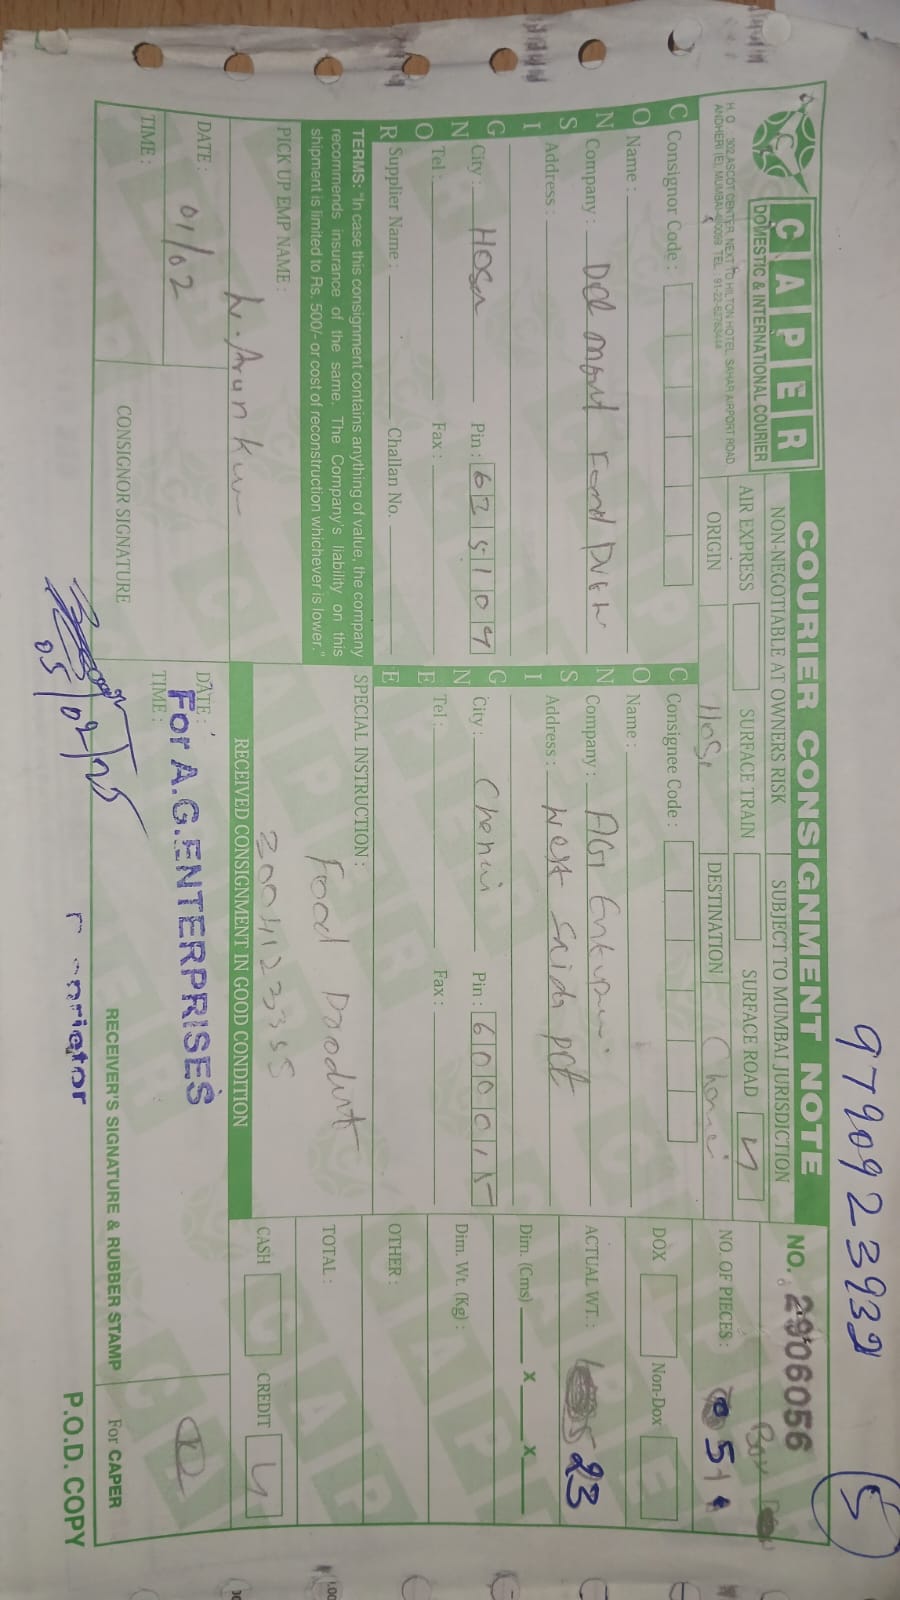 9790923932
5
CAPER
DOMESTIC & INTERNATIONAL COURIER
H. O. 302, ASCOT CENTER, NEXT TO HILTON HOTEL, SAHAR AIRPORT ROAD
ANDHERI (E), MUMBAI-400099. TEL.: 91-22-
COURIER CONSIGNMENT NOTE
NON-NEGOTIABLE AT OWNERS RISK
SUBJECT TO MUMBAI JURISDICTION
NO. 2906056
AIR EXPRESS
SURFACE TRAIN
SURFACE ROAD
ORIGIN
DESTINATION
NO. OF PIECES :
Consignor Code :
Name :
Company : Del mont Food
Address :
City : Hosu Pin : 635109
Tel : Fax :
Supplier Name : Challan No.
CONSIGNOR
Consignee Code :
Name :
Company : AG
Address : West Saida pet
City : Chenni Pin : 600015
Tel : Fax :
CONSIGNEE
DOX
Non-Dox
ACTUAL WT. : 23
Dim. (Cms) x x
Dim. Wt. (Kg) :
OTHER :
TERMS: "In case this consignment contains anything of value, the company
recommends insurance of the same. The Company's liability on this
shipment is limited to Rs. 500/- or cost of reconstruction whichever is lower."
SPECIAL INSTRUCTION :
Food Product
TOTAL :
PICK UP EMP NAME :
RECEIVED CONSIGNMENT IN GOOD CONDITION
CASH
CREDIT
DATE : 01/02
TIME :
CONSIGNOR SIGNATURE
DATE :
TIME :
For A.G.ENTERPRISES
05/02/25
RECEIVER'S SIGNATURE & RUBBER STAMP
For CAPER
P.O.D. COPY